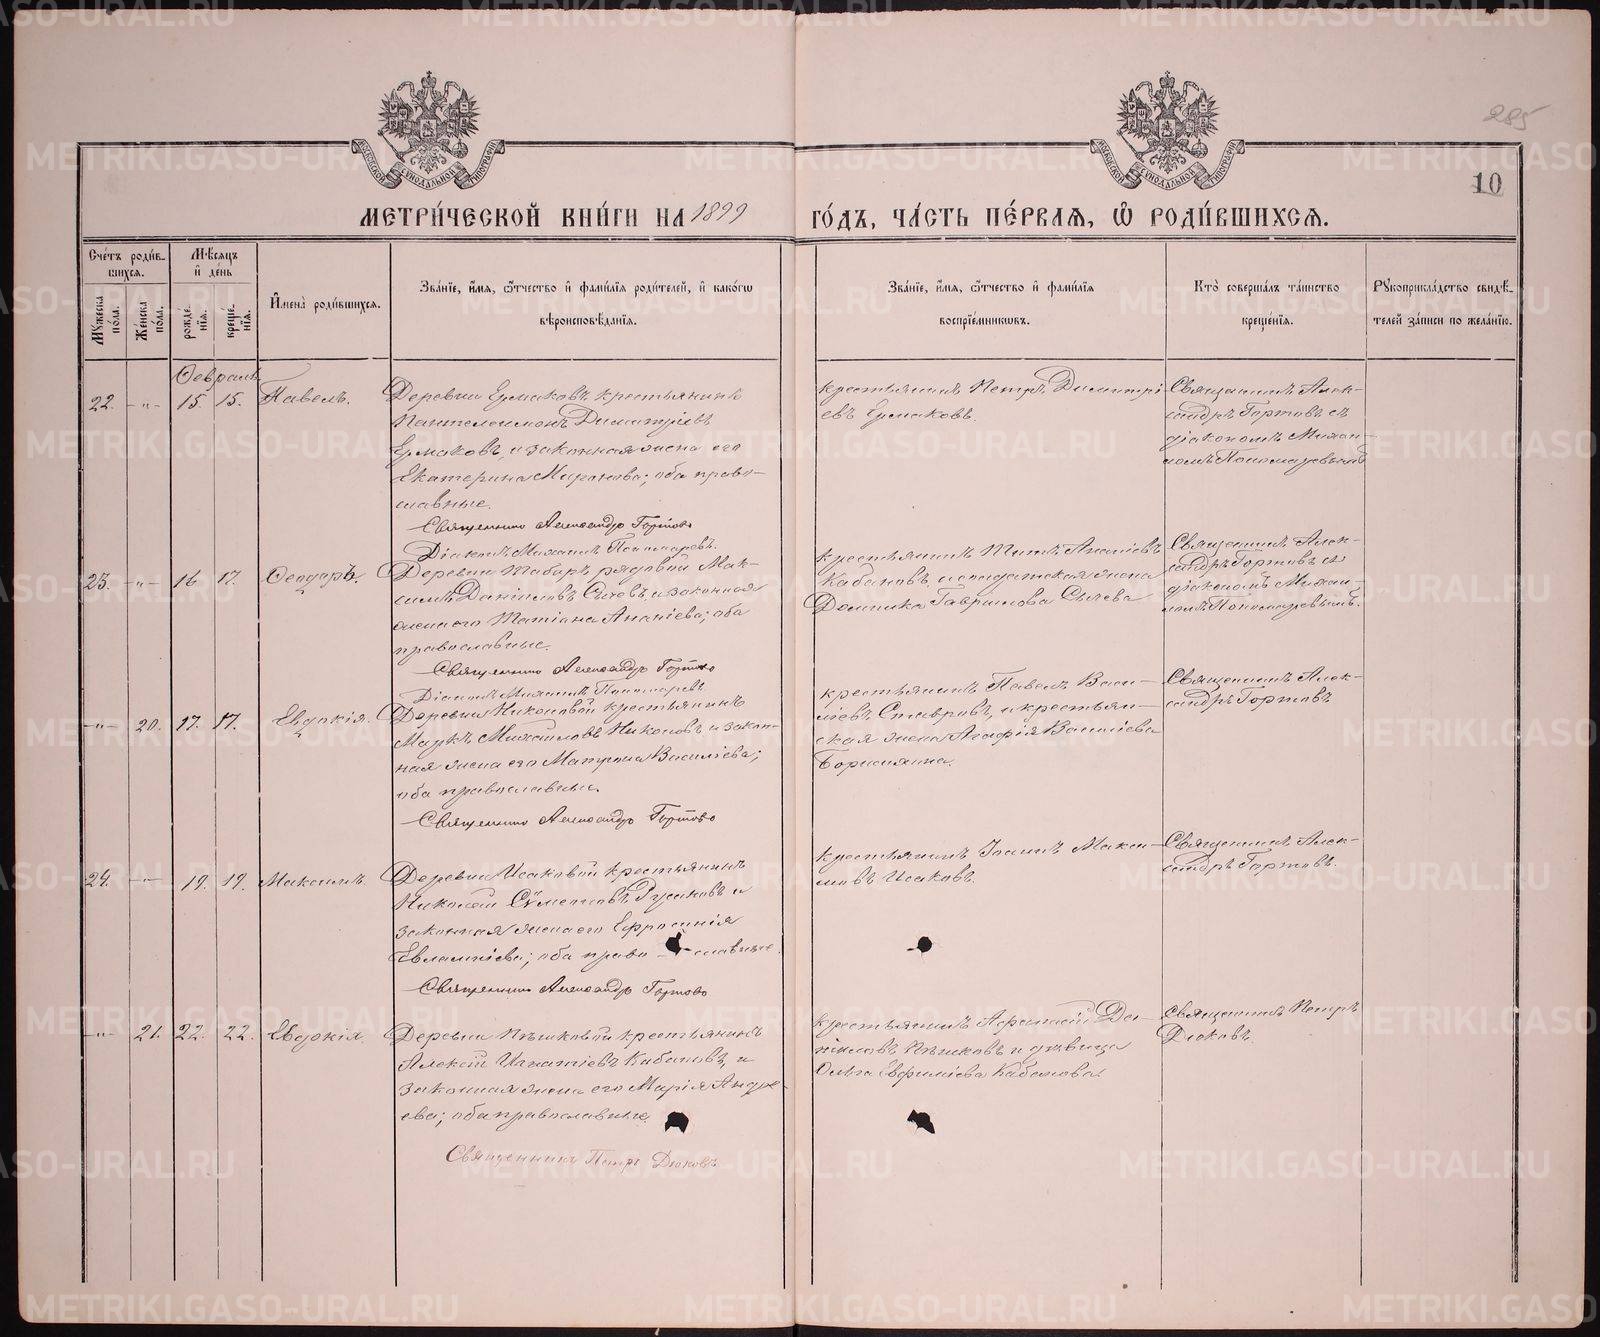 285
10
МЕТРИЧЕСКОЙ КНИГИ НА 1899 ГОДЪ, ЧАСТЬ ПЕРВАЯ, Ѿ РОДИВШИХСЯ.
Счетъ родив-
шихся.
Мужеска пола.
Женска пола.
Мѣсяцъ
и день
рожде-
нія.
креще-
нія.
Имена родившихся.
Званіе, имя, ѿтчество и фамилія родителей, и какогѡ
вѣроисповѣданія.
Званіе, имя, ѿтчество и фамилія
воспріемникѡвъ.
Кто совершалъ таинство
крещенія.
Рукоприкладство свидѣ-
телей записи по желанію.
Февраль
22. -"- 15. 15. Павелъ.
Деревни Ермаковъ крестьянинъ
Пантелеимонъ Димитріевъ
Ермаковъ, и законная жена его
Екатерина Миронова; оба право-
славные.
Священникъ Александръ Гортовъ
Діаконъ Михаилъ Пономаревъ.
крестьянинъ Петръ Димитрі-
евъ Ермаковъ.
Священникъ Алек-
сандръ Гортовъ съ
діакономъ Михаи-
ломъ Пономаревымъ
23. -"- 16 17. Ѳеодоръ.
Деревни Табаръ рядовой Мак-
симъ Даніиловъ Сычевъ и законная
жена его Татіана Ананіева; оба
православные.
Священникъ Александръ Гортовъ
Діаконъ Михаилъ Пономаревъ
крестьянинъ Титъ Ананіевъ
Кабановъ и солдатская жена
Домника Гаврилова Сычева
Священникъ Алек-
сандръ Гортовъ съ
діакономъ Михаи-
ломъ Пономаревымъ.
-"- 20. 17. 17. Евдокія.
Деревни Никоновой крестьянинъ
Маркъ Михаиловъ Никоновъ и закон-
ная жена его Матрона Василіева;
оба православные.
Священникъ Александръ Гортовъ
крестьянинъ Павелъ Васи-
ліевъ Ставровъ, и крестьян-
ская жена Агафія Василіева
Священникъ Алек-
сандръ Гортовъ
24. -"- 19. 19. Максимъ.
Деревни Исаковой крестьянинъ
Николай Сѵмеоновъ Русаковъ и
законная жена его Ефросинія
Евлампіева; оба право-славные.
Священникъ Александръ Гортовъ
крестьянинъ Іоаннъ Макси-
мовъ Исаковъ.
Священникъ Алек-
сандръ Гортовъ.
-"- 21. 22. 22. Евдокія.
Деревни Пѣшковой крестьянинъ
Алексій Игнатіевъ Кабановъ, и
законная жена его Марія Андре-
ева; оба православные.
Священникъ Петръ Дюковъ
крестьянинъ Да-
ніиловъ Пѣшковъ и дѣвица
Ольга Евфиміева Кабанова.
Священникъ Петръ
Дюковъ.
METRIKI.GASO-URAL.RU